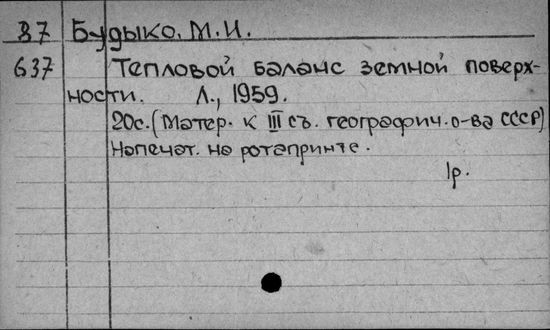 87 Будыко. М.И.
637 Тепловой баланс земной поверх-
ности. Л., 1959.
20с. (Матер. к III съ. географич. о-ва СССР)
Напечат. на ротапринте.
1р.